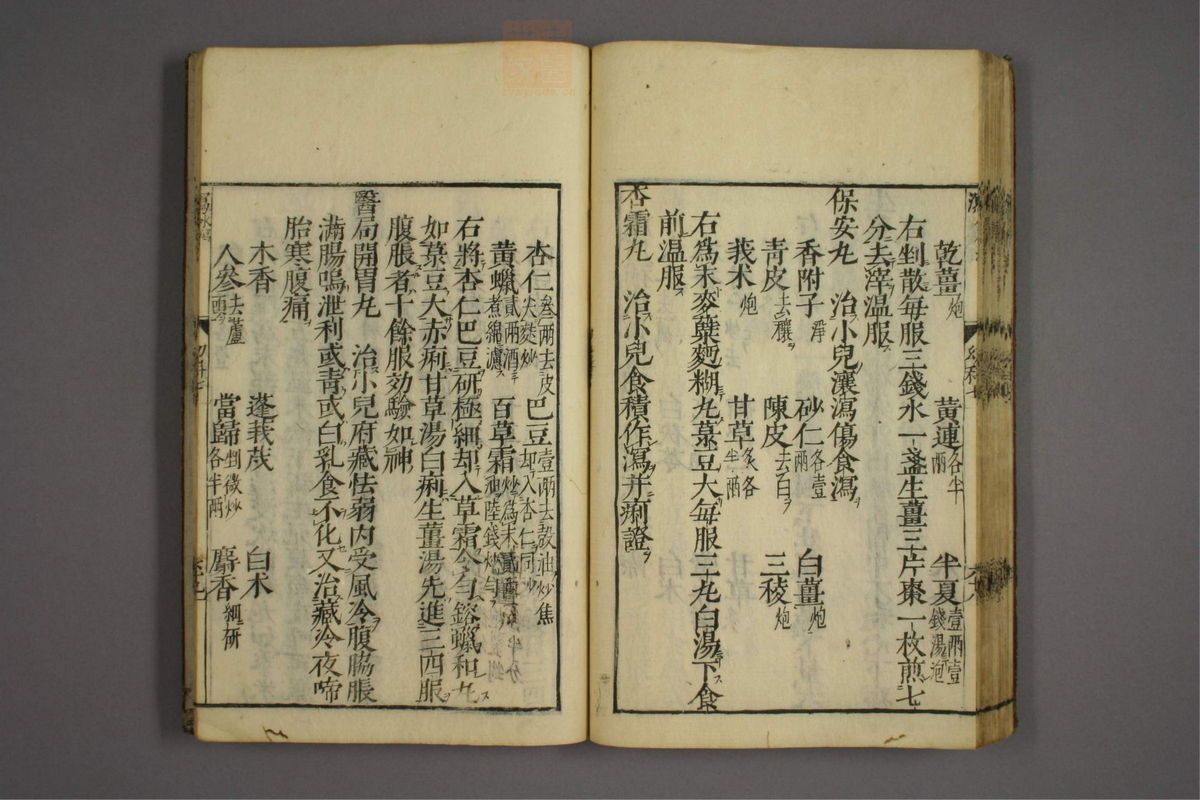 乾薑炮 黃連各半兩 半夏壹兩壹錢湯泡
右剉散每服三錢水一盞生薑三片棗一枚煎七
分去滓溫服
保安丸 治小兒瀼瀉傷食瀉
香附子淨 砂仁各壹兩 白薑炮
青皮去穰 陳皮去白 三稜炮
莪术炮 甘草炙各半兩
右爲末麥蘗麪糊丸菉豆大每服三丸白湯下食
前溫服
杏霜丸 治小兒食積作瀉并痢證
杏仁叁兩去皮尖麩炒 巴豆壹兩去殼油炒焦却入杏仁同炒
黃蠟貳兩酒煮綿濾 百草霜炒爲末
右將杏仁巴豆研極細却入草霜令勻鎔蠟和丸
如菉豆大赤痢甘草湯白痢生薑湯先進三四服
腹脹者十餘服効驗如神
醫局開胃丸 治小兒府藏怯弱內受風冷腹脇脹
滿腸鳴泄利或青或白乳食不化又治藏冷夜啼
胎寒腹痛
木香 蓬莪茂 白朮
人參去蘆頭 當歸剉微炒各半兩 麝香細研